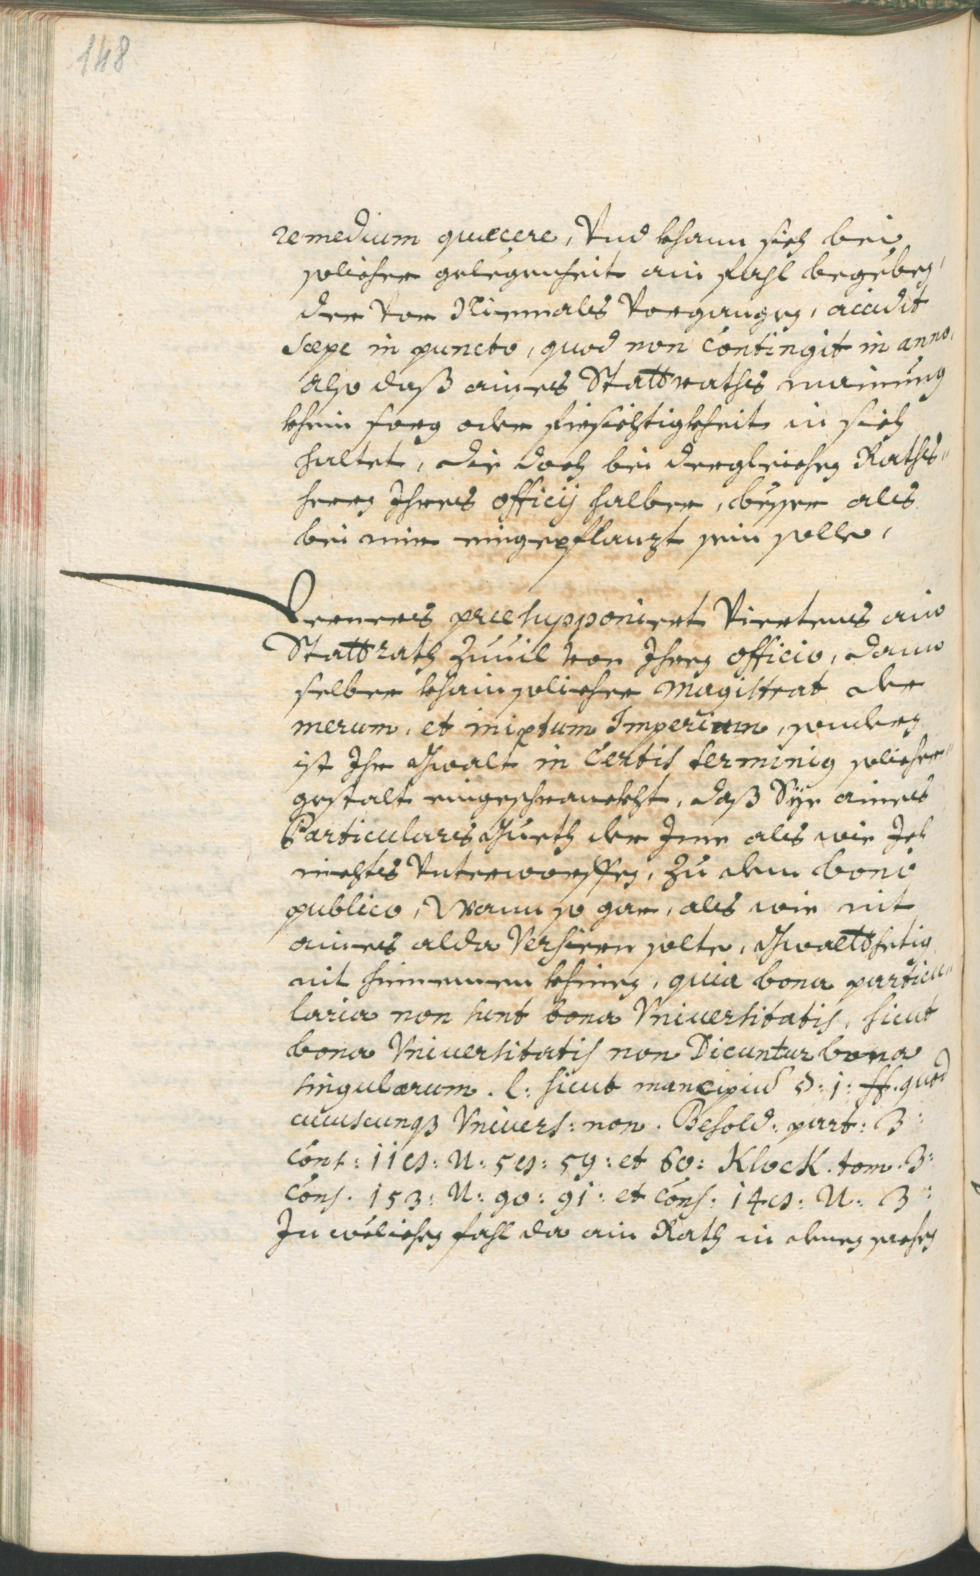 148
remedium quærere, Vnd khann sich bei
solicher gelegenheit ain fahl begeben,
der vor Niemals vorgangen, accidit
sæpe in puncto, quod non contingit in anno,
Also daß aines Stattraths mainung
khein sorg oder fürsichtigkheit in sich
haltet, die doch bei dergleichen Raths=
herrn Ihres officij halber, besser als
bei mir eingepflanzt sein solle,
Ferners præsupponiert Viertens ain
Stattrath zuuil von Ihren officio, dann
selber khain solicher Magistrat der
merum, et mixtum Imperium, sonders
ist Ihr Gwalt in certis terminis solicher=
gestalt eingeschranckht, daß Sye aines
Particulars Gueth der Ime als wie Ich
nichts Vnterworffen, zu dem bono
publico, Wann so gar, als wie nit
aines alda Versieren solte, Gwalttthetig
nit hinnemen khinen, quia bona particu=
laria non sunt bona Vniuersitatis, sicut
bona Vniuersitatis non Dicuntur bona
singularum. l: sicut mancipiũ §: 1: ff. quod
cuiuscunqʒ Vniuers: non. Besold: part: 3:
Cons: 118: N: 58: 59: et 60: Klock. tom. 3:
Cons. 153: N: 90: 91: et Cons. 148: N: 3:
In welichen fahl da ain Rath in denen sachen